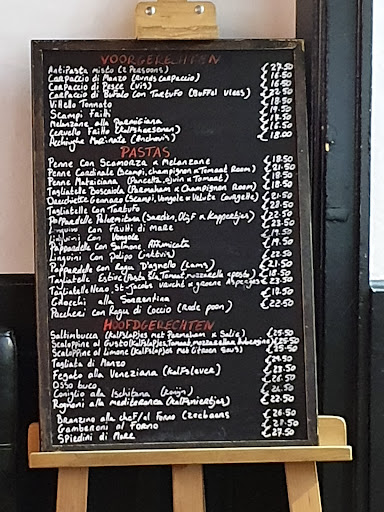 VOORGERECHTEN
Antipasta misto (2 Persoons) €27.50
Carpaccio di Manzo (Rundscarpaccio) €16.50
Carpaccio di Pesce (Vis) €18.50
Carpaccio di Bufalo con Tartufo (Buffel Vlees) €22.50
Vitello Tonnato €18.50
Scampi Fritti €19.50
Melanzane alla Parmigiana
Cervello Fritto (Kalfshersenen) €16.50
Acchighe Marinate (Anchovis) €18.00
PASTAS
Penne con Scamorza & Melanzane €18.50
Penne Cardinale (Scampi, champignon & Tomaat Room) €21.50
Penne Mataiciana (Pancetta, ajuin & Tomaat) €18.50
Tagliatelle Boscaiola (Parmaham & Champignon Room)
Orecchiette Gennaro (Scampi, Vongole & Valute Courgette)
Tagliatelle con Tartufo
Pappardelle Palermitana (Sardien, Olijf & Kappertjes) €22.50
Linguini con Frutti di mare €23.50
Linguini con Vongole
Pappardelle con Salmone Affumicata €19.50
Linguini con Polipo (inktvis) €22.50
Pappardelle con Ragu D'agnello (Lams) €21.50
Tagliatelle Estive (Pasta Sla, Tomaat, mozzarella & pesto) €18.50
Tagliatelle Nero St Jacobs vrucht & groene Asperges €23.50
Gnocchi alla Sorrentina €18.50
Paccheri con Ragu di Coccio (Rode poon) €22.50
HOOFDGERECHTEN
Saltimbucca (Kalflapjes met Parmaham & Salie) €25.50
Scaloppine al Gusto (Kalflapjes, Tomaat, mozzarella en Aubergine) €25.50
Scaloppine al Limone (Kalflapjes met Citroen saus) €25.50
Tagliata di Manzo €29.50
Fegato alla Veneziana (Kalfslever) €23.50
Osso buco €26.50
Coniglio alla Ischitana (Konijn) €21.50
Rognoni alla mediteranea (Kalfsniertjes) €22.50
Branzino alla chef/al Forno (zeebaars €26.50
Gamberoni al Forno €29.50
Spiedini di Mare €27.50